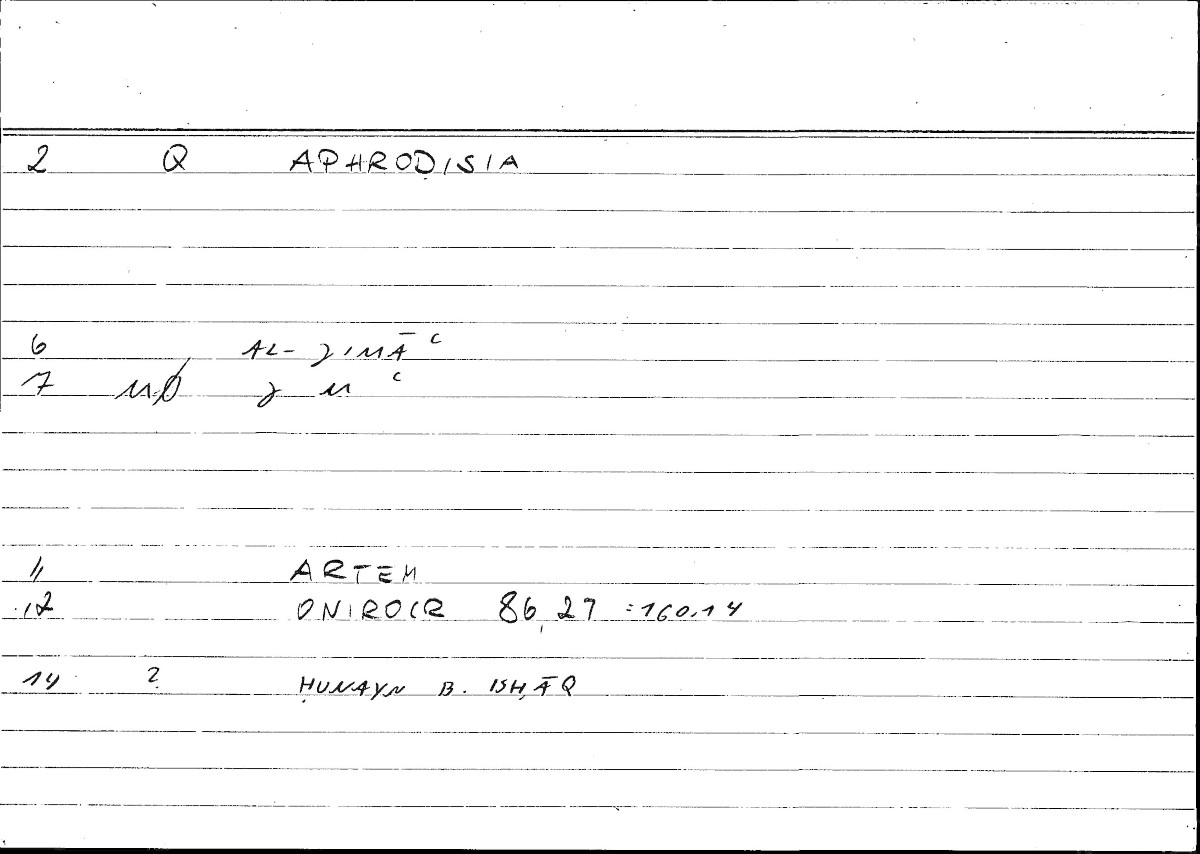 2 Q APHRODISIA
6 AL-ȷIMĀʿ
7 MØ ȷ M ʿ
11 ARTEM
12 ONIROCR 86,27 =160.14
14 2 ḤUNAYN B. ISḤĀQ